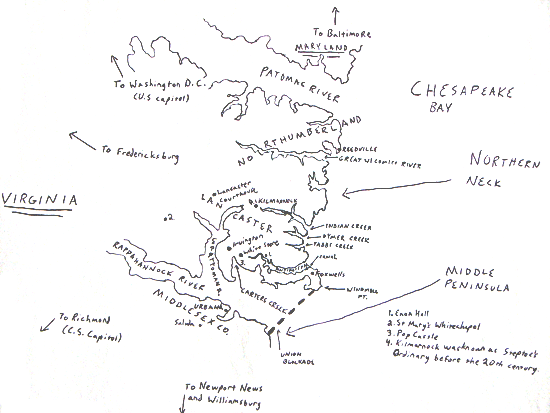 To Baltimore
MARYLAND
PATOMAC RIVER
CHESAPEAKE
BAY
To Washington D.C.
(U.S capitol)
NORTHUMBERLAND
REEDVILLE
GREAT WICOMICO RIVER
To Fredericksburg
NORTHERN
NECK
VIRGINIA
Lancaster
Courthouse
KILMARNOCK
2.
CASTER
INDIAN CREEK
DYMER CREEK
TABBS CREEK
Irvington
White Stone
3.
RAPPAHANNOCK RIVER
CARTERS CREEK
WINDMILL
PT.
MIDDLESEX CO.
URBANNA
Saluda
MIDDLE
PENINSULA
To Richmon
(C.S. Capitol)
UNION
BLOCKADE
1. Enon Hall
2. St Mary's Whitechapel
3. Pop Castle
4. Kilmarnock was known as Steptoe's
Ordinary before the 20th century.
To Newport News
and Williamsburg